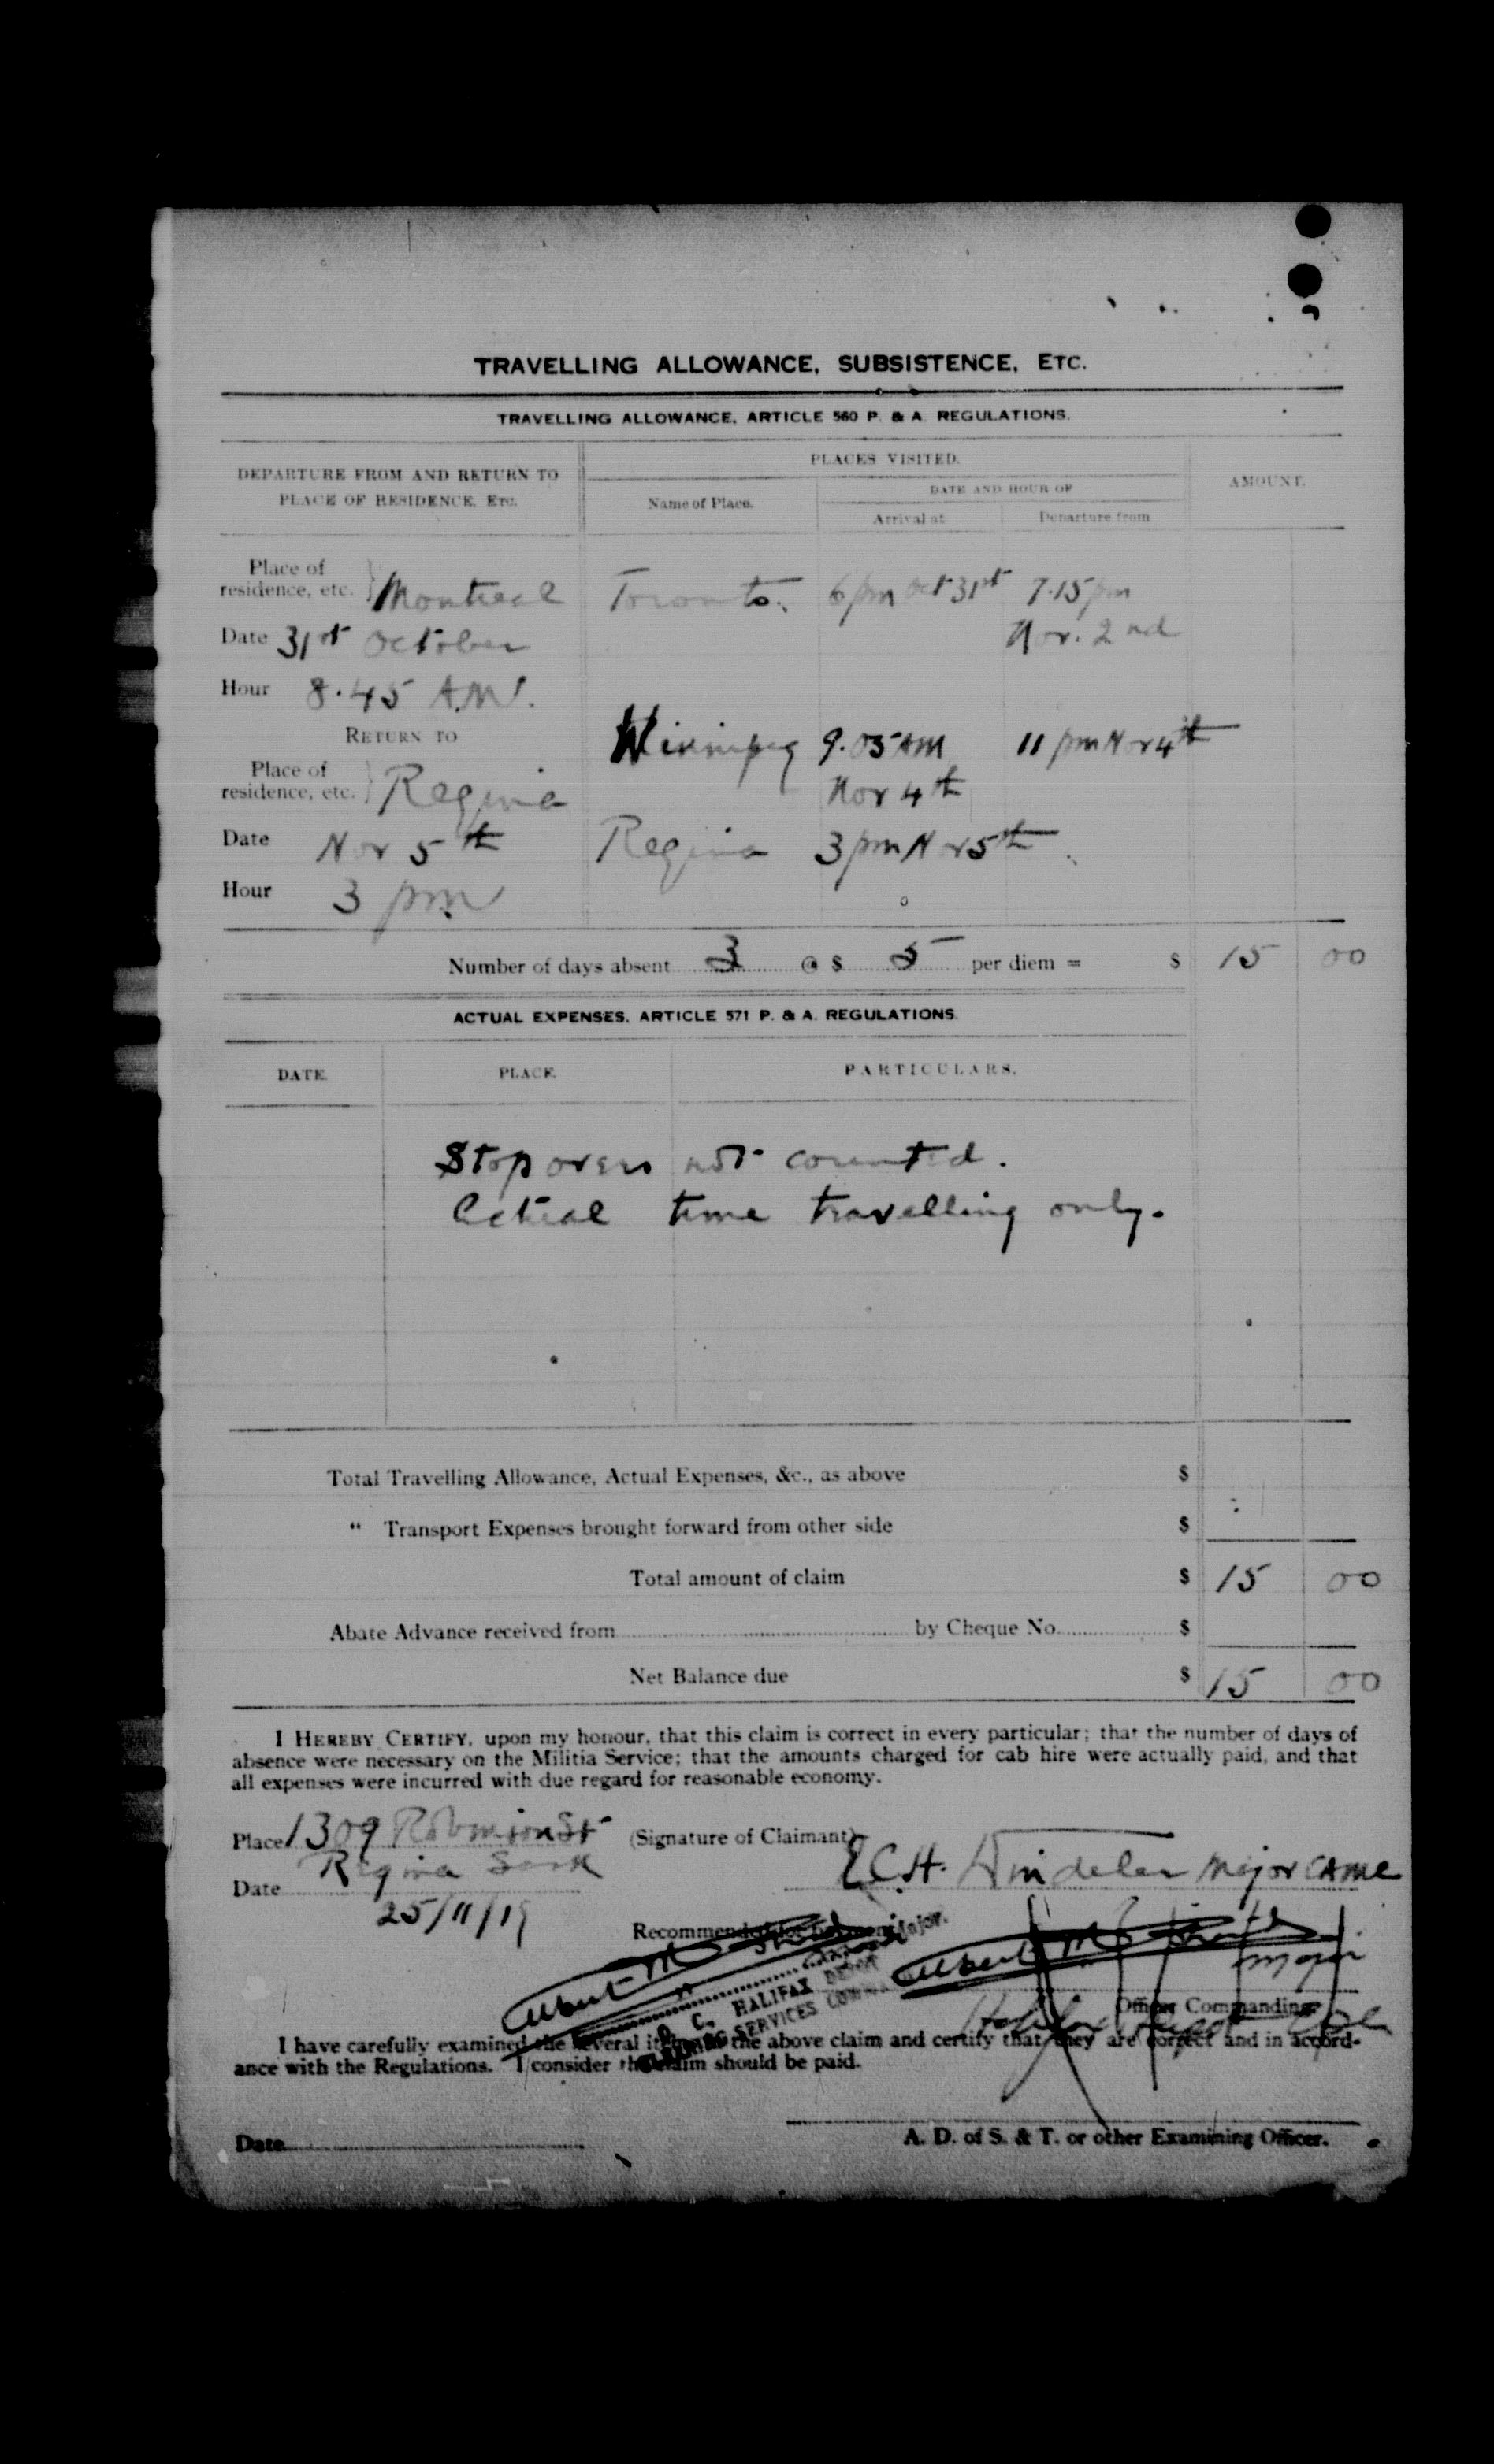 TRAVELLING ALLOWANCE, SUBSISTENCE, ETC.
TRAVELLING ALLOWANCE, ARTICLE 560 P. & A. REGULATIONS.
DEPARTURE FROM AND RETURN TO PLACE OF RESIDENCE, Etc.
PLACES VISITED.
AMOUNT.
Name of Place.
DATE AND HOUR OF
Arrival at
Departure from
Place of residence, etc. } Montreal
Toronto. 6 pm Oct 31st 7.15 pm
Nov. 2nd
Date 31st October
Hour 8.45 A.M.
RETURN TO
Winnipeg 9.05 AM 11 pm Nov 4th
Nov 4th
Place of residence, etc. } Regina
Date Nov 5th
Regina 3 pm Nov 5th
Hour 3 pm
Number of days absent 3 @ $ 5 per diem = $ 15 00
ACTUAL EXPENSES, ARTICLE 571 P. & A. REGULATIONS.
DATE. PLACE. PARTICULARS.
Stop overs not counted.
Actual time travelling only.
Total Travelling Allowance, Actual Expenses, &c., as above $
“ Transport Expenses brought forward from other side $
Total amount of claim $ 15 00
Abate Advance received from by Cheque No. $
Net Balance due $ 15 00
I HEREBY CERTIFY, upon my honour, that this claim is correct in every particular; that the number of days of
absence were necessary on the Militia Service; that the amounts charged for cab hire were actually paid, and that
all expenses were incurred with due regard for reasonable economy.
Place 1309 Robinson St
(Signature of Claimant)
Regina Sask
E.C.H. Major CAMC
Date 25/11/19
Recommended for payment
Albert M
Major.
Albert M
Major
O. C. HALIFAX DEPOT
CLEARING SERVICES COMMAND
Officer Commanding
Halifax Depot
I have carefully examined the several items of the above claim and certify that they are correct and in accord-
ance with the Regulations. I consider the claim should be paid.
Date
A. D. of S. & T. or other Examining Officer.